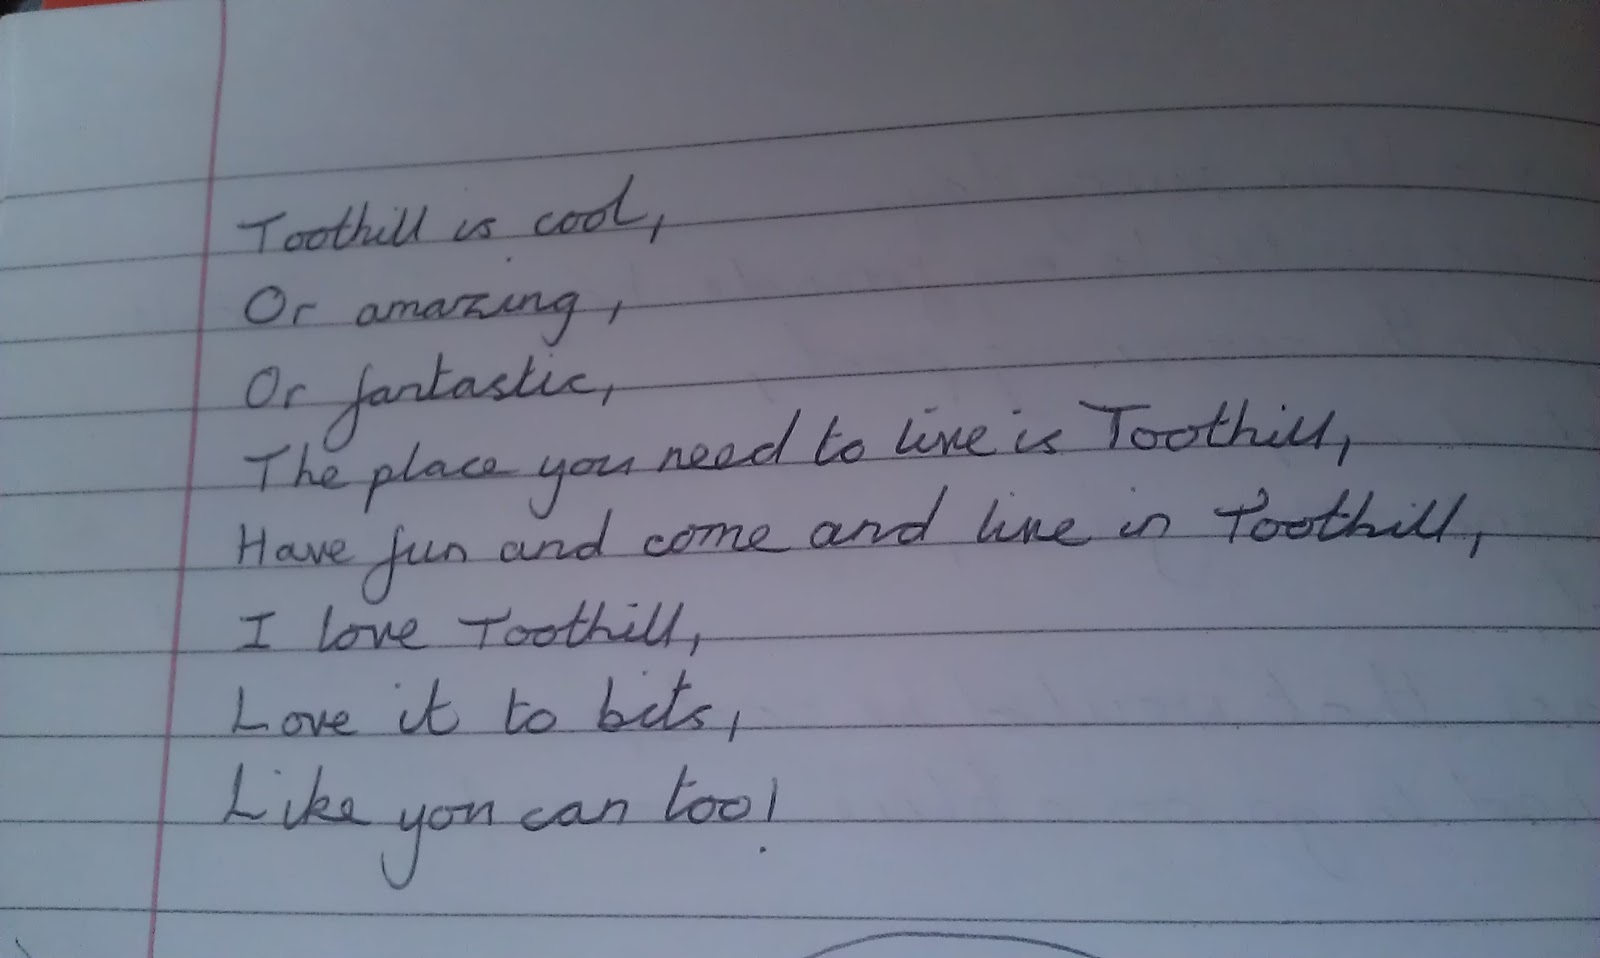 Toothill is cool,
Or amazing,
Or fantastic,
The place you need to live is Toothill,
Have fun and come and live in Toothill,
I love Toothill,
Love it to bits,
Like you can too!